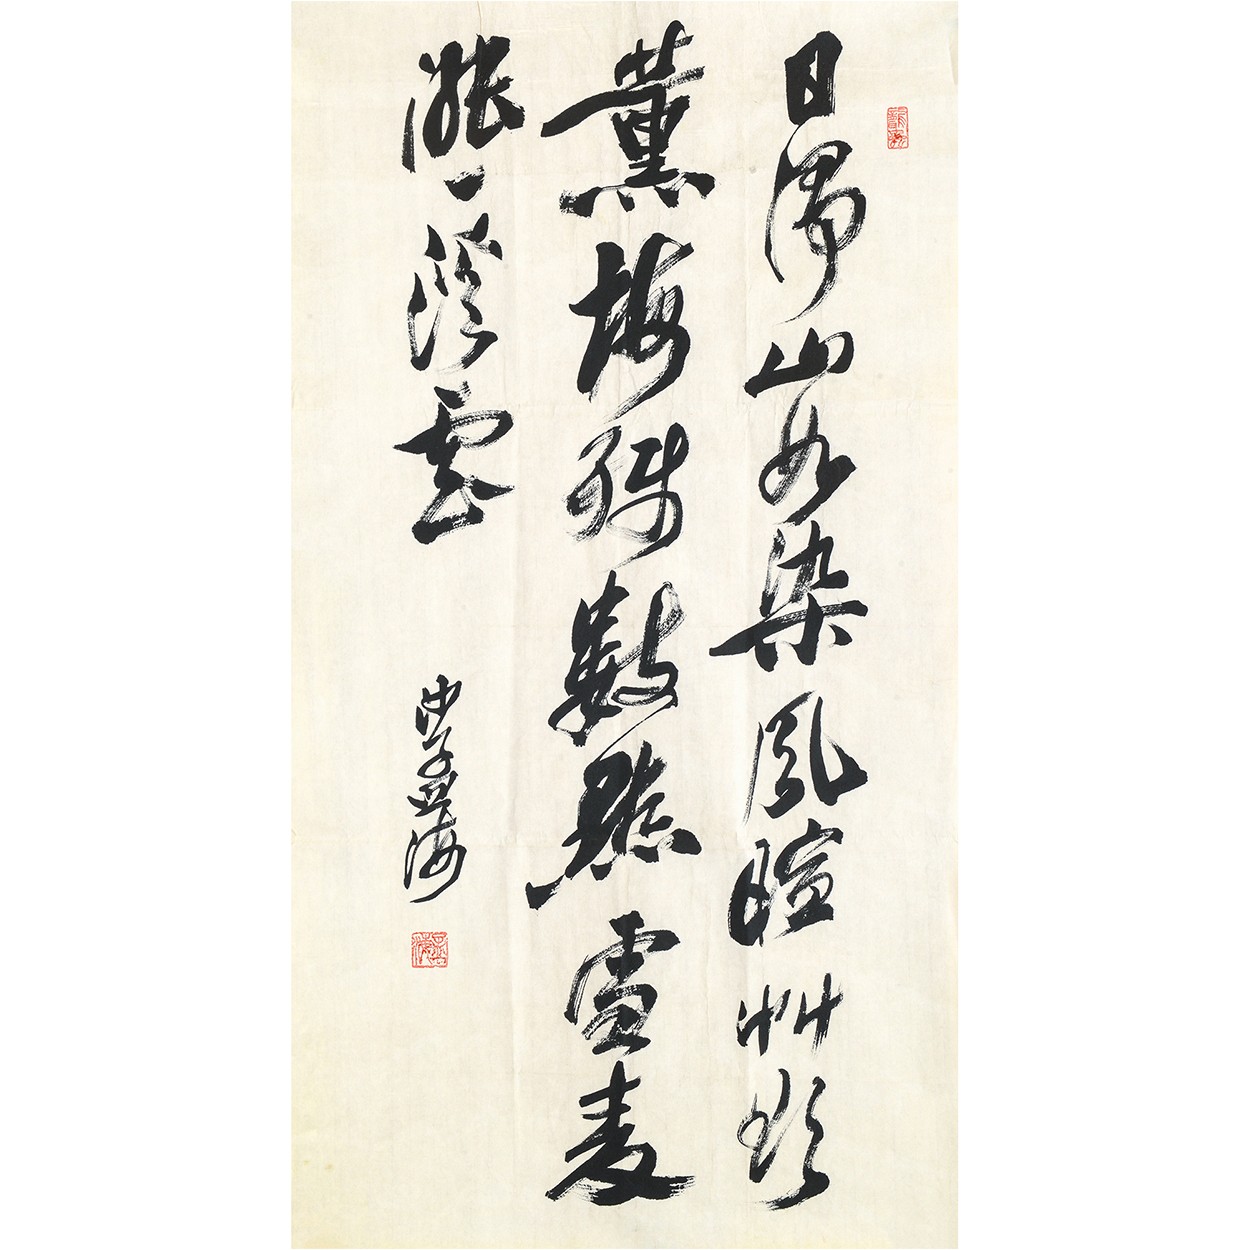 日淨山如染風暄艸欲
薰梅殘數點雪麥
漲一溪雲
沙孟海